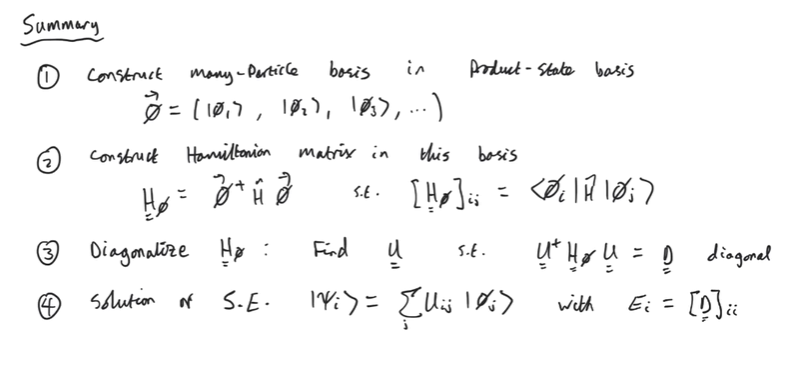 Summary
① Construct many-Particle basis in Product-state basis
$\vec{\phi} = (|\phi_1\rangle, |\phi_2\rangle, |\phi_3\rangle, \ldots)$
② Construct Hamiltonian matrix in this basis
$\underline{\underline{H}}_\phi = \vec{\phi}^+ \hat{H} \vec{\phi}$ s.t. $[\underline{\underline{H}}_\phi]_{ij} = \langle\phi_i|\hat{H}|\phi_j\rangle$
③ Diagonalize $\underline{\underline{H}}_\phi$ : Find $\underline{\underline{U}}$ s.t. $\underline{\underline{U}}^+ \underline{\underline{H}}_\phi \underline{\underline{U}} = \underline{\underline{D}}$ diagonal
④ Solution of S.E. $|\Psi_i\rangle = \sum_j U_{ij} |\phi_j\rangle$ with $E_i = [\underline{\underline{D}}]_{ii}$